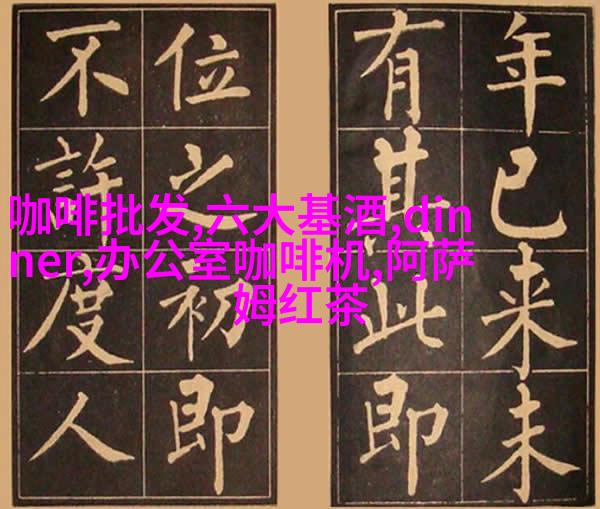 年已来未
有其此即
位之初即
不許度人
咖啡批发,六大基酒,din
ner,办公室咖啡机,阿萨
姆红茶